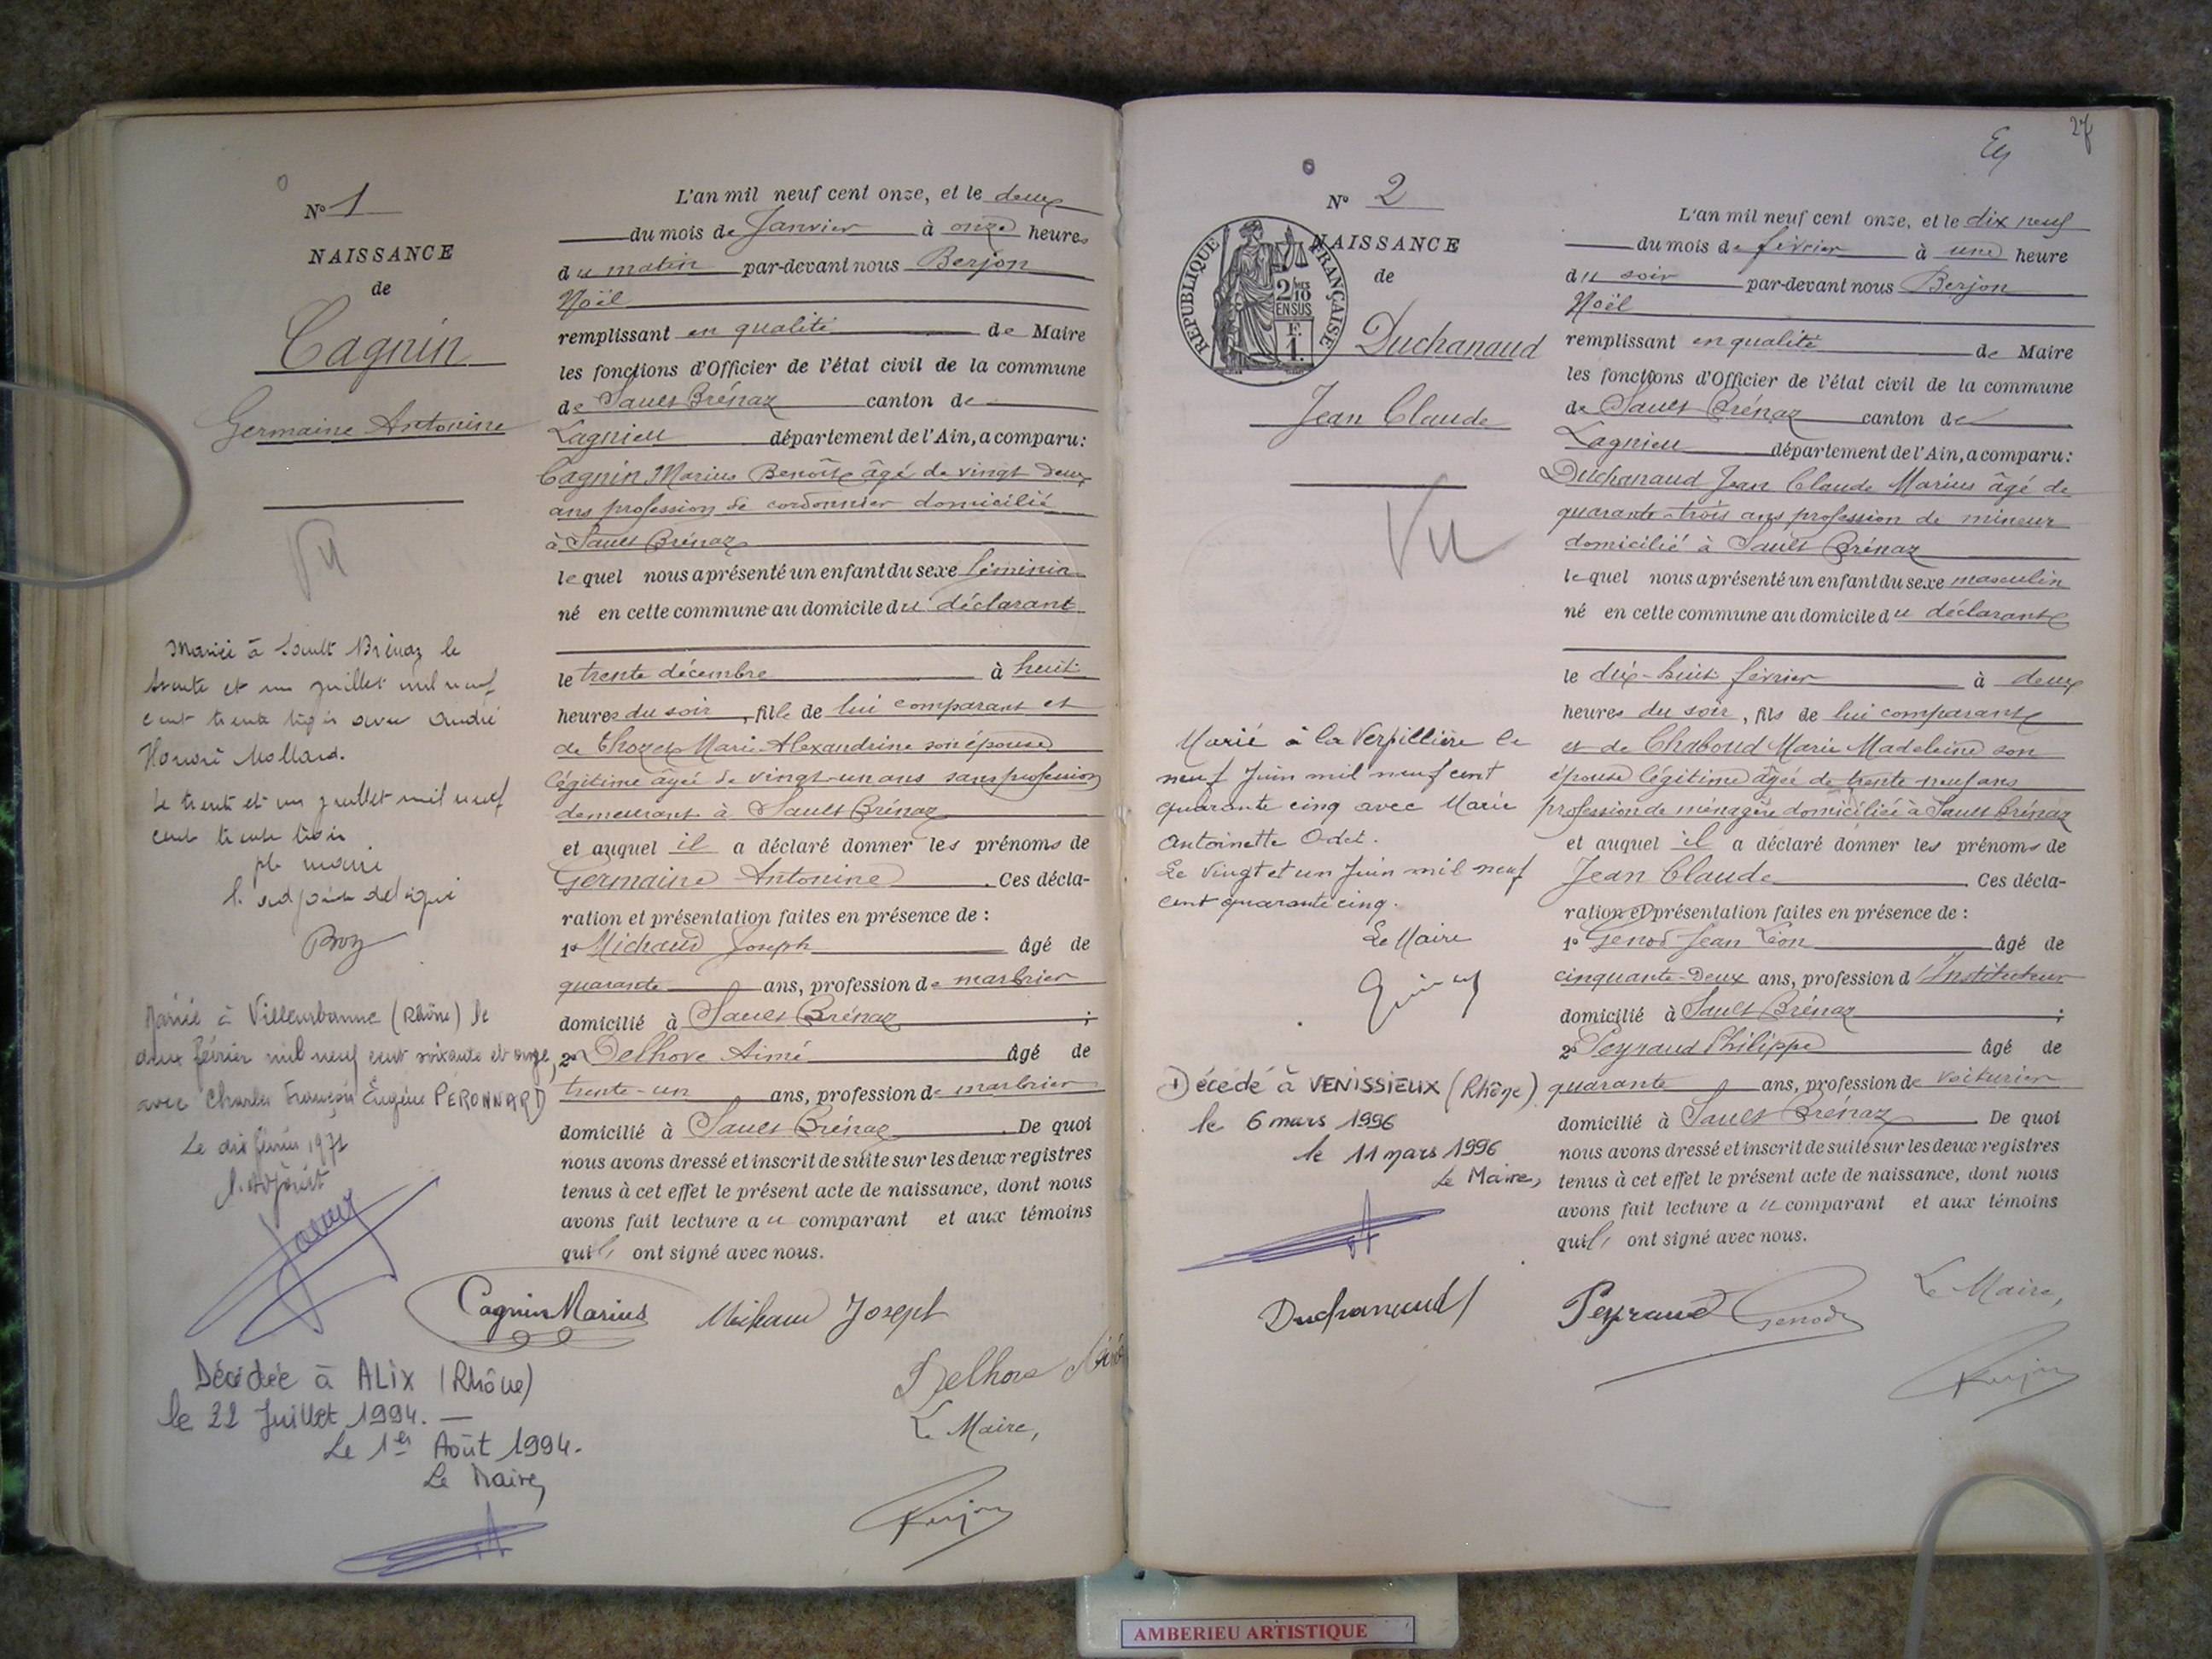 N° 1
NAISSANCE
de
Cagnin
Germaine Antonine
Vu
Mariée à Sault Brénaz le
trente et un juillet mil neuf
cent trente trois avec André
Honoré Mollard.
Le trente et un juillet mil neuf
cent trente trois
pr le maire
l'adjoint délégué
Mariée à Villeurbanne (Rhône) le
deux février mil neuf cent soixante et onze,
avec Charles François Eugène PERONNARD
Le dix février 1971
L'adjoint
Décédée à ALIX (Rhône)
le 22 Juillet 1994. —
Le 1er Août 1994.
Le Maire,
L'an mil neuf cent onze, et le deux
du mois de Janvier à onze heures
du matin par-devant nous Berjon
Noël
remplissant en qualité de Maire
les fonctions d'Officier de l'état civil de la commune
de Sault Brénaz canton de
Lagnieu département de l'Ain, a comparu:
Cagnin Marius Benoît âgé de vingt deux
ans profession de cordonnier domicilié
à Sault Brénaz
lequel nous a présenté un enfant du sexe féminin
né en cette commune au domicile du déclarant
le trente décembre à huit
heures du soir, fille de lui comparant et
de Chozel Marie Alexandrine son épouse
légitime âgée de vingt-un ans sans profession
demeurant à Sault Brénaz
et auquel il a déclaré donner les prénoms de
Germaine Antonine. Ces décla-
ration et présentation faites en présence de :
1° Michaud Joseph âgé de
quarante ans, profession de marbrier
domicilié à Sault Brénaz ;
2° Delhore Aimé âgé de
trente-un ans, profession de marbrier
domicilié à Sault Brénaz. De quoi
nous avons dressé et inscrit de suite sur les deux registres
tenus à cet effet le présent acte de naissance, dont nous
avons fait lecture au comparant et aux témoins
qui ont signé avec nous.
Cagnin Marius Michaud Joseph
Delhore Aimé
Le Maire,
Berjon
27
N° 2
NAISSANCE
de
REPUBLIQUE FRANÇAISE
2/10 EN SUS
F.
1.
Duchanaud
Jean Claude
Vu
Marié à la Verpillière le
neuf Juin mil neuf cent
quarante cinq avec Marie
Antoinette Odet.
Le Vingt et un Juin mil neuf
cent quarante cinq.
Le Maire
Décédé à VENISSIEUX (Rhône)
le 6 mars 1996
le 11 mars 1996
Le Maire,
L'an mil neuf cent onze, et le dix neuf
du mois de février à une heure
du soir par-devant nous Berjon
Noël
remplissant en qualité de Maire
les fonctions d'Officier de l'état civil de la commune
de Sault Brénaz canton de
Lagnieu département de l'Ain, a comparu:
Duchanaud Jean Claude Marius âgé de
quarante-trois ans profession de mineur
domicilié à Sault Brénaz
lequel nous a présenté un enfant du sexe masculin
né en cette commune au domicile du déclarant
le dix-huit février à deux
heures du soir, fils de lui comparant
et de Chaboud Marie Madeleine son
épouse légitime âgée de trente neuf ans
profession de ménagère domiciliée à Sault Brénaz
et auquel il a déclaré donner les prénoms de
Jean Claude. Ces décla-
ration et présentation faites en présence de :
1° Genod Jean Léon âgé de
cinquante-deux ans, profession d'Instituteur
domicilié à Sault Brénaz ;
2° Peyraud Philippe âgé de
quarante ans, profession de voiturier
domicilié à Sault Brénaz. De quoi
nous avons dressé et inscrit de suite sur les deux registres
tenus à cet effet le présent acte de naissance, dont nous
avons fait lecture au comparant et aux témoins
qui ont signé avec nous.
Duchanaud Peyraud Genod
Le Maire,
Berjon
AMBERIEU ARTISTIQUE